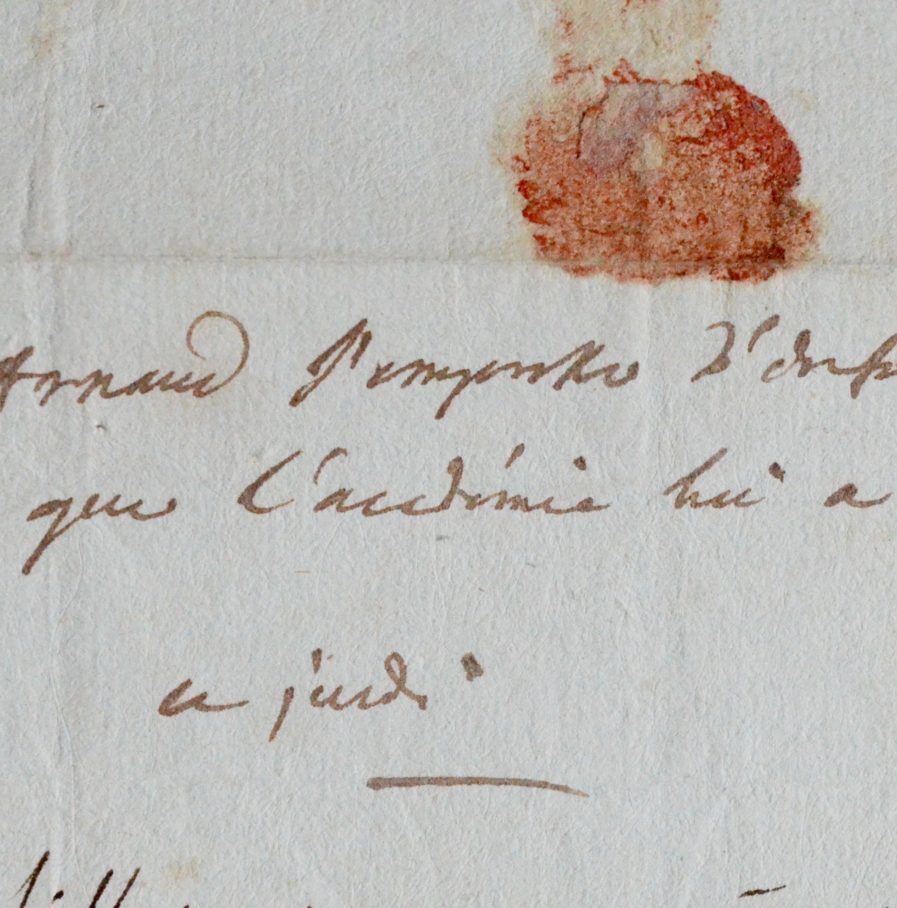 Arnaud s'empresse d'
que l'académie lui a
ce jeudi